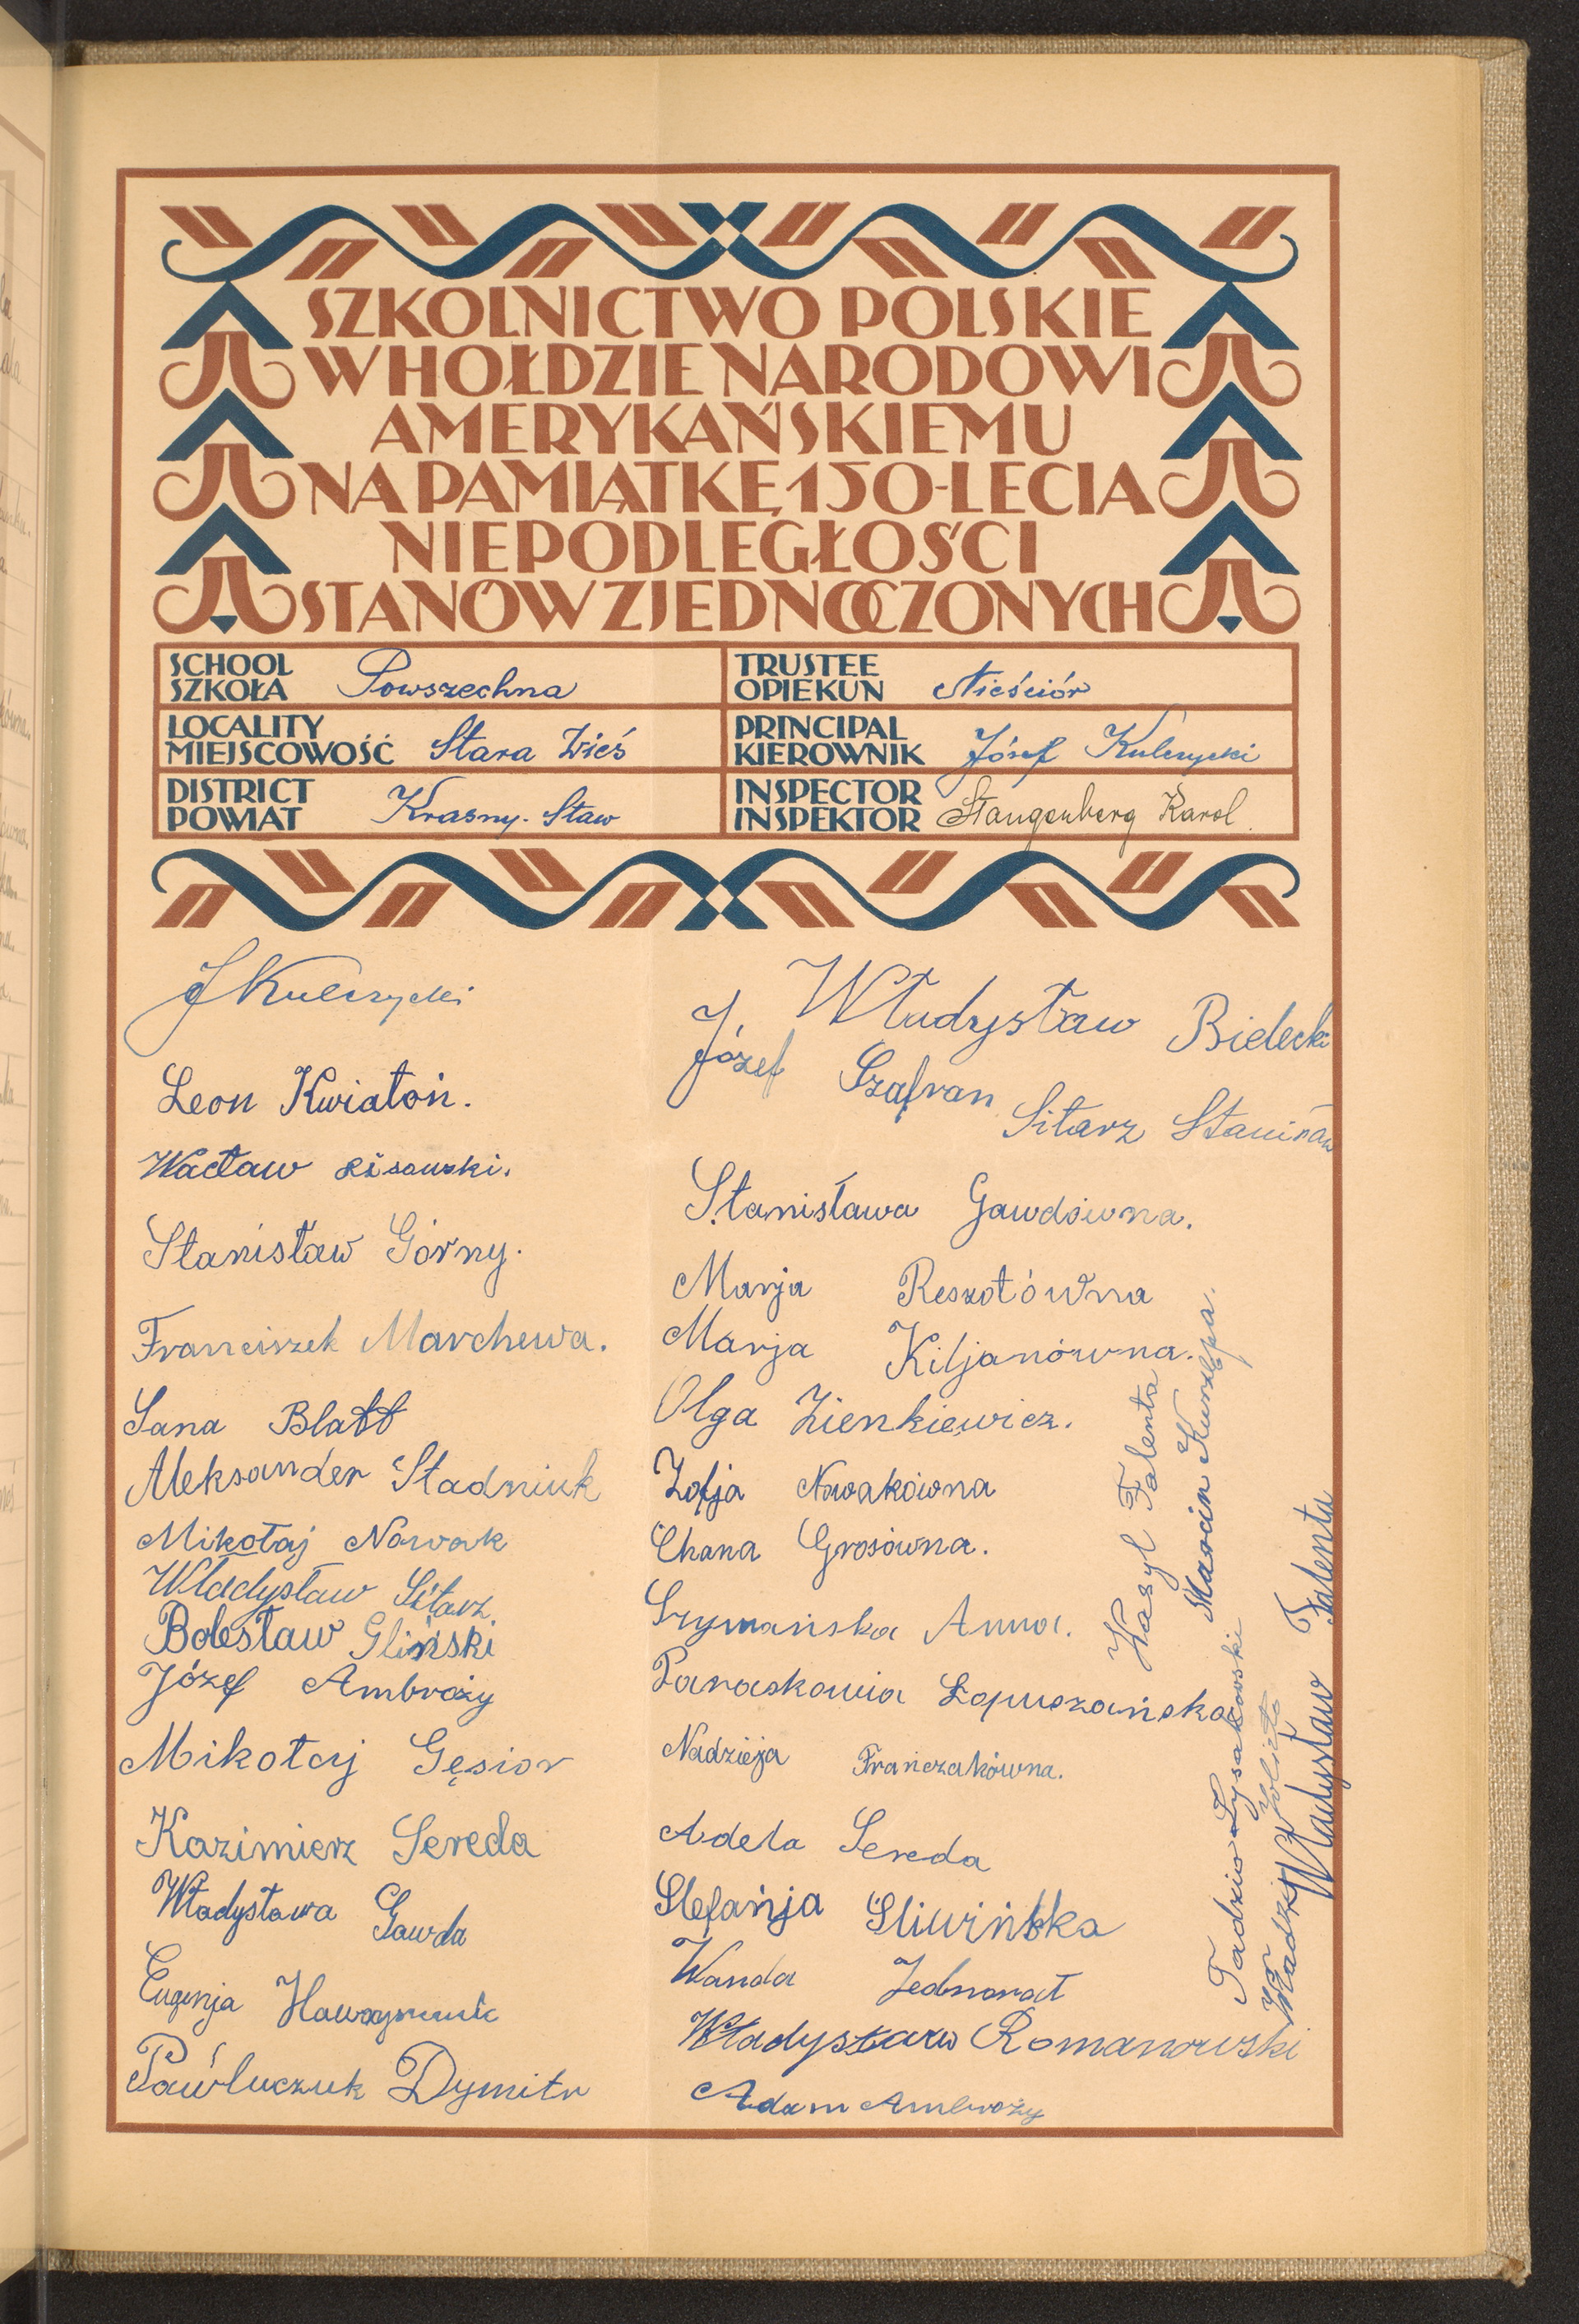 SZKOLNICTWO POLSKIE
W HOŁDZIE NARODOWI
AMERYKAŃSKIEMU
NA PAMIĄTKĘ 150-LECIA
NIEPODLEGŁOŚCI
STANÓW ZJEDNOCZONYCH
SCHOOL
SZKOŁA Powszechna
TRUSTEE
OPIEKUN Nieściór
LOCALITY
MIEJSCOWOŚĆ Stara Wieś
PRINCIPAL
KIEROWNIK Józef Kulczycki
DISTRICT
POWIAT Krasny-Staw
INSPECTOR
INSPEKTOR Stangenberg Karol
J Kulczycki
Leon Kwiatoń.
Wacław Lisowski.
Stanisław Górny.
Franciszek Marchewa.
Sana Blatt
Aleksander Stadniuk
Mikołaj Nowak
Władysław Sitarz
Bolesław Gliński
Józef Ambroży
Mikołaj Gęsior
Kazimierz Sereda
Władysława Gawda
Eugenja
Pawluczuk Dymitr
Władysław Bielecki
Józef Szafran
Sitarz Stanisław
Stanisława Gawdówna.
Marja Reszotówna
Marja Kiljanówna.
Olga Zienkiewicz.
Zofja Nowakówna
Chana Grosówna.
Szymańska Anna.
Paraskowia Łopuszańska
Nadzieja Frańczakówna.
Adela Sereda
Stefanja Sliwińska
Wanda Jednorał
Władysław Romanowski
Adam Ambroży
Wasyl Talenta
Marcin Kurzępa.
Tadzio Łysakowski
Władysław Talenta